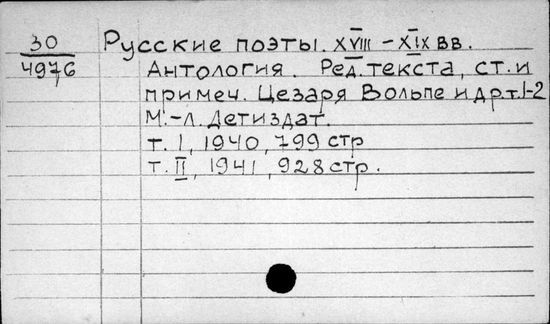 30 Русские поэты. XVIII – XIX вв.
4976 Антология. Ред. текста, ст. и
примеч. Цезаря Вольпе и др. т. I-2
М.-Л. Детиздат.
т. I, 1940, 799 стр
т. II, 1941, 928 стр.